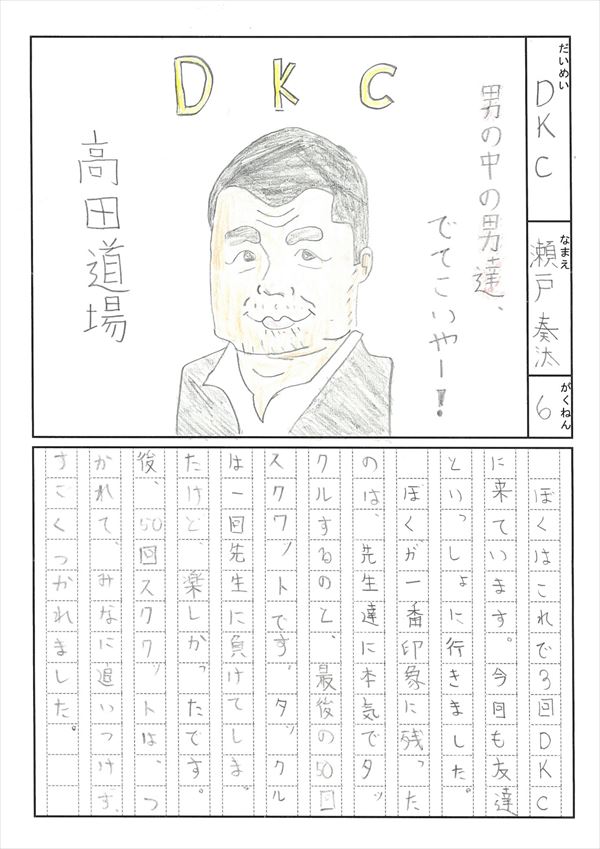 だいめい
DKC
なまえ
瀬戸 奏汰
がくねん
6
DKC
男の中の男達、
でてこいやー!
高田道場
ぼくはこれで3回DKC
に来ています。今回も友達
といっしょに行きました。
ぼくが一番印象に残った
のは、先生達に本気でタッ
クルするのと、最後の50回
スクワットです。タックル
は一回先生に負けてしまっ
たけど、楽しかったです。
後、50回スクワットは、つ
かれて、みなに追いつけず、
すごくつかれました。